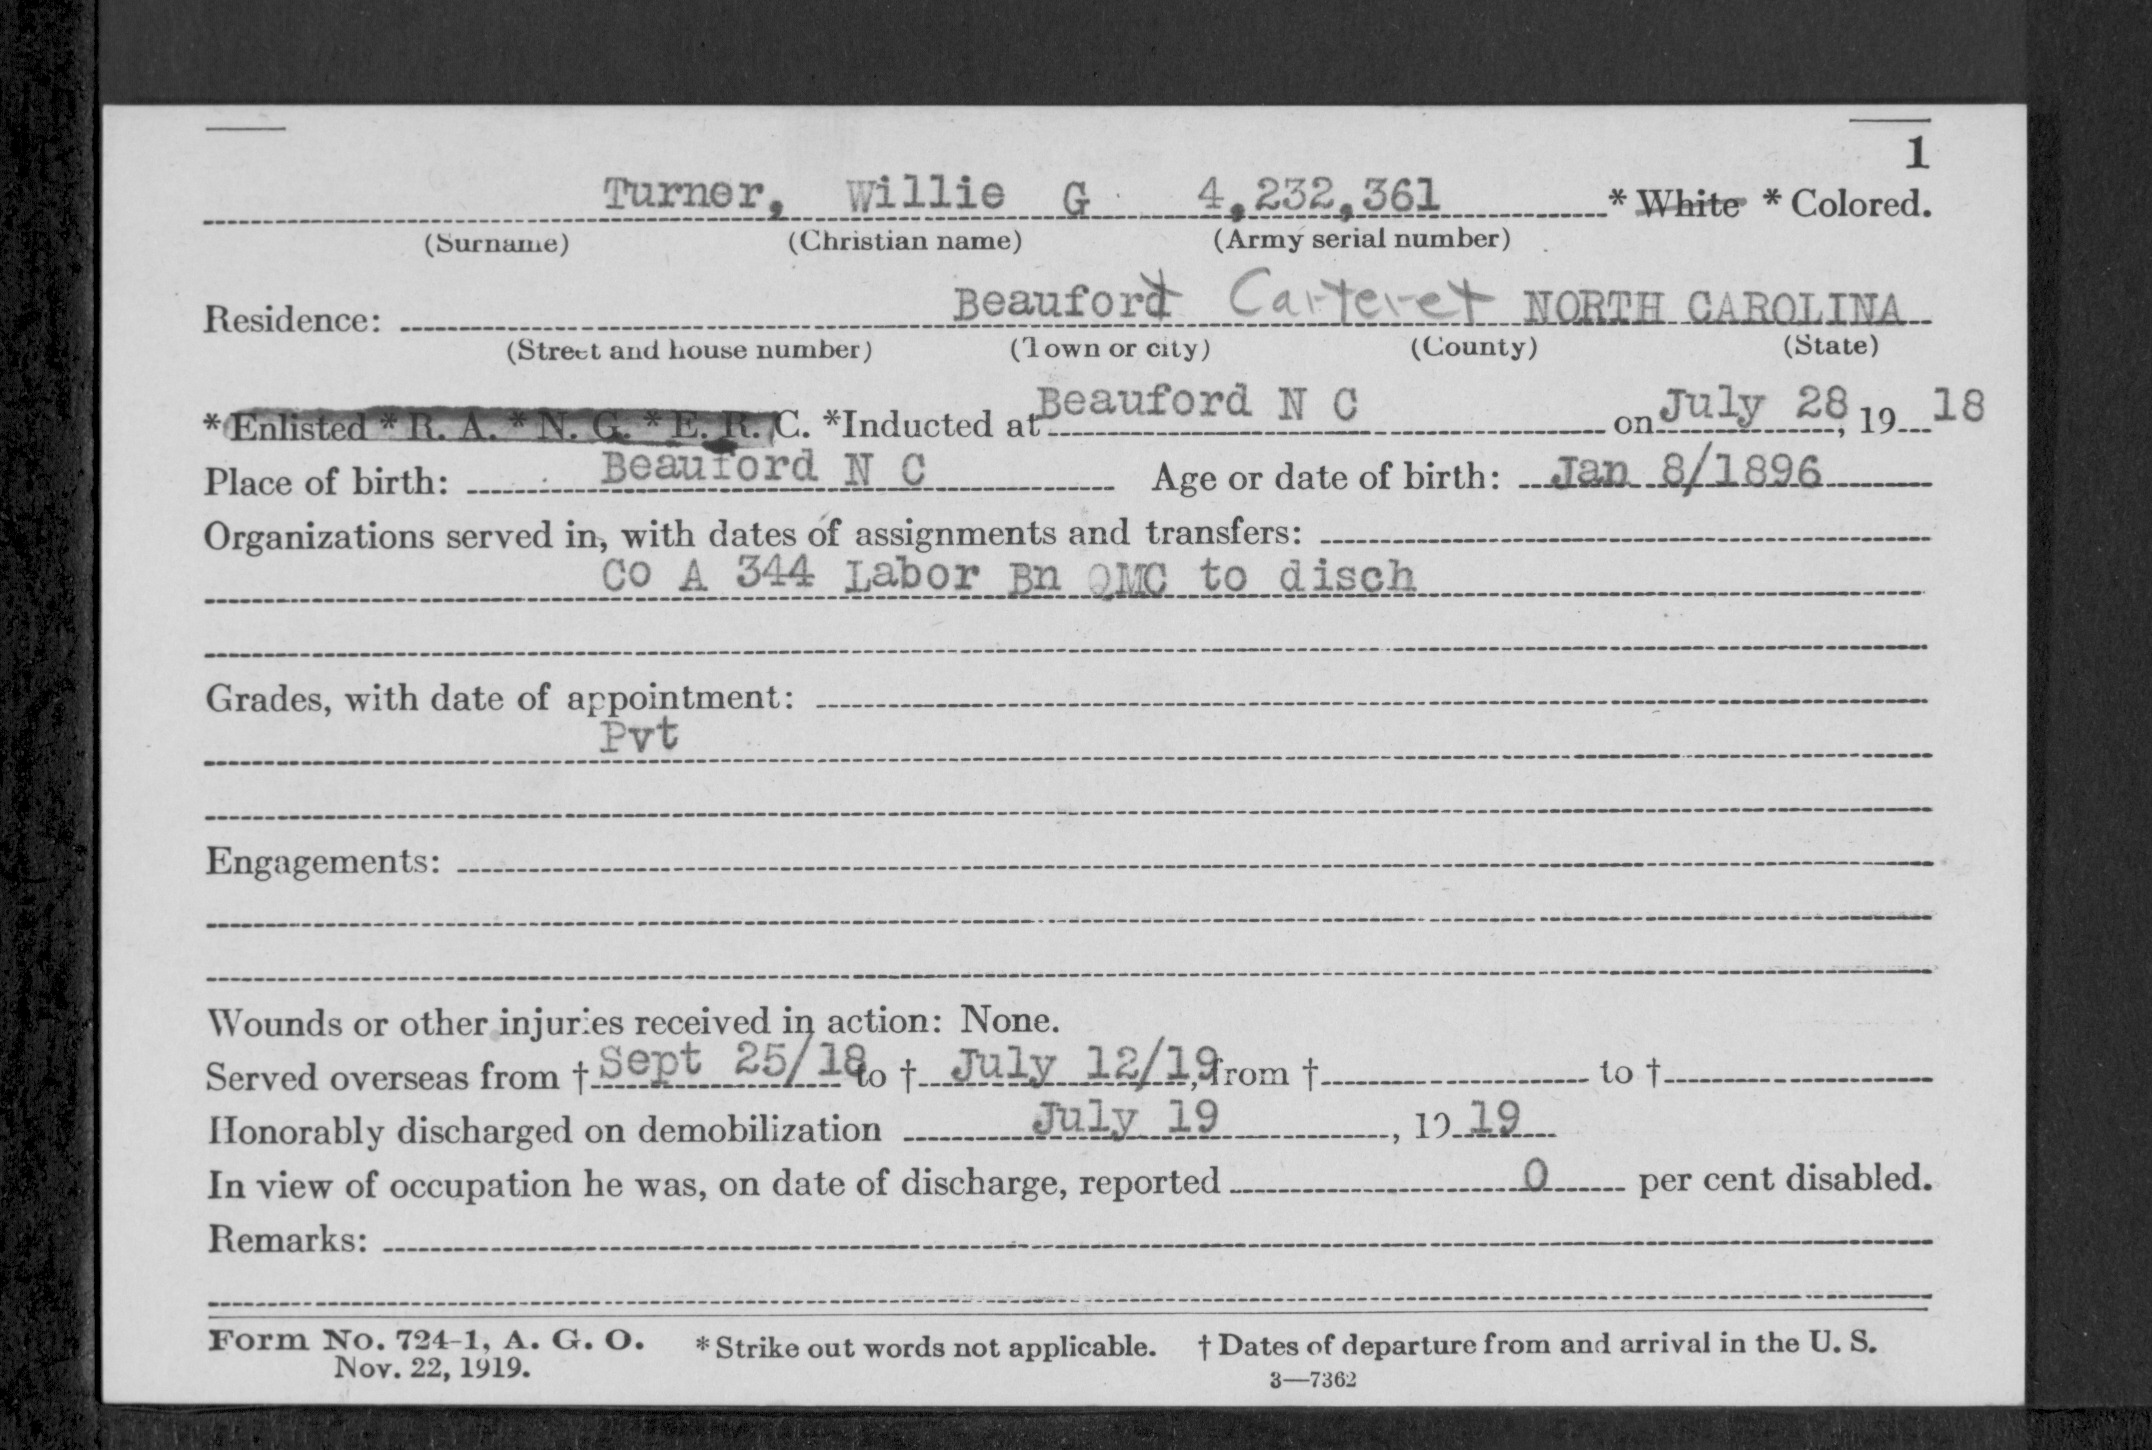 1
Turner, Willie G 4,232,361 * White * Colored.
(Surname) (Christian name) (Army serial number)
Residence: Beaufort Carteret NORTH CAROLINA
(Street and house number) (Town or city) (County) (State)
* Enlisted * R. A. * N. G. * E. R. C. *Inducted at Beauford N C on July 28, 19 18
Place of birth: Beauford N C Age or date of birth: Jan 8/1896
Organizations served in, with dates of assignments and transfers:
Co A 344 Labor Bn QMC to disch
Grades, with date of appointment:
Pvt
Engagements:
Wounds or other injuries received in action: None.
Served overseas from † Sept 25/18 to † July 12/19, from † to †
Honorably discharged on demobilization July 19, 19 19
In view of occupation he was, on date of discharge, reported 0 per cent disabled.
Remarks:
Form No. 724-1, A. G. O. * Strike out words not applicable. † Dates of departure from and arrival in the U. S.
Nov. 22, 1919. 3—7362